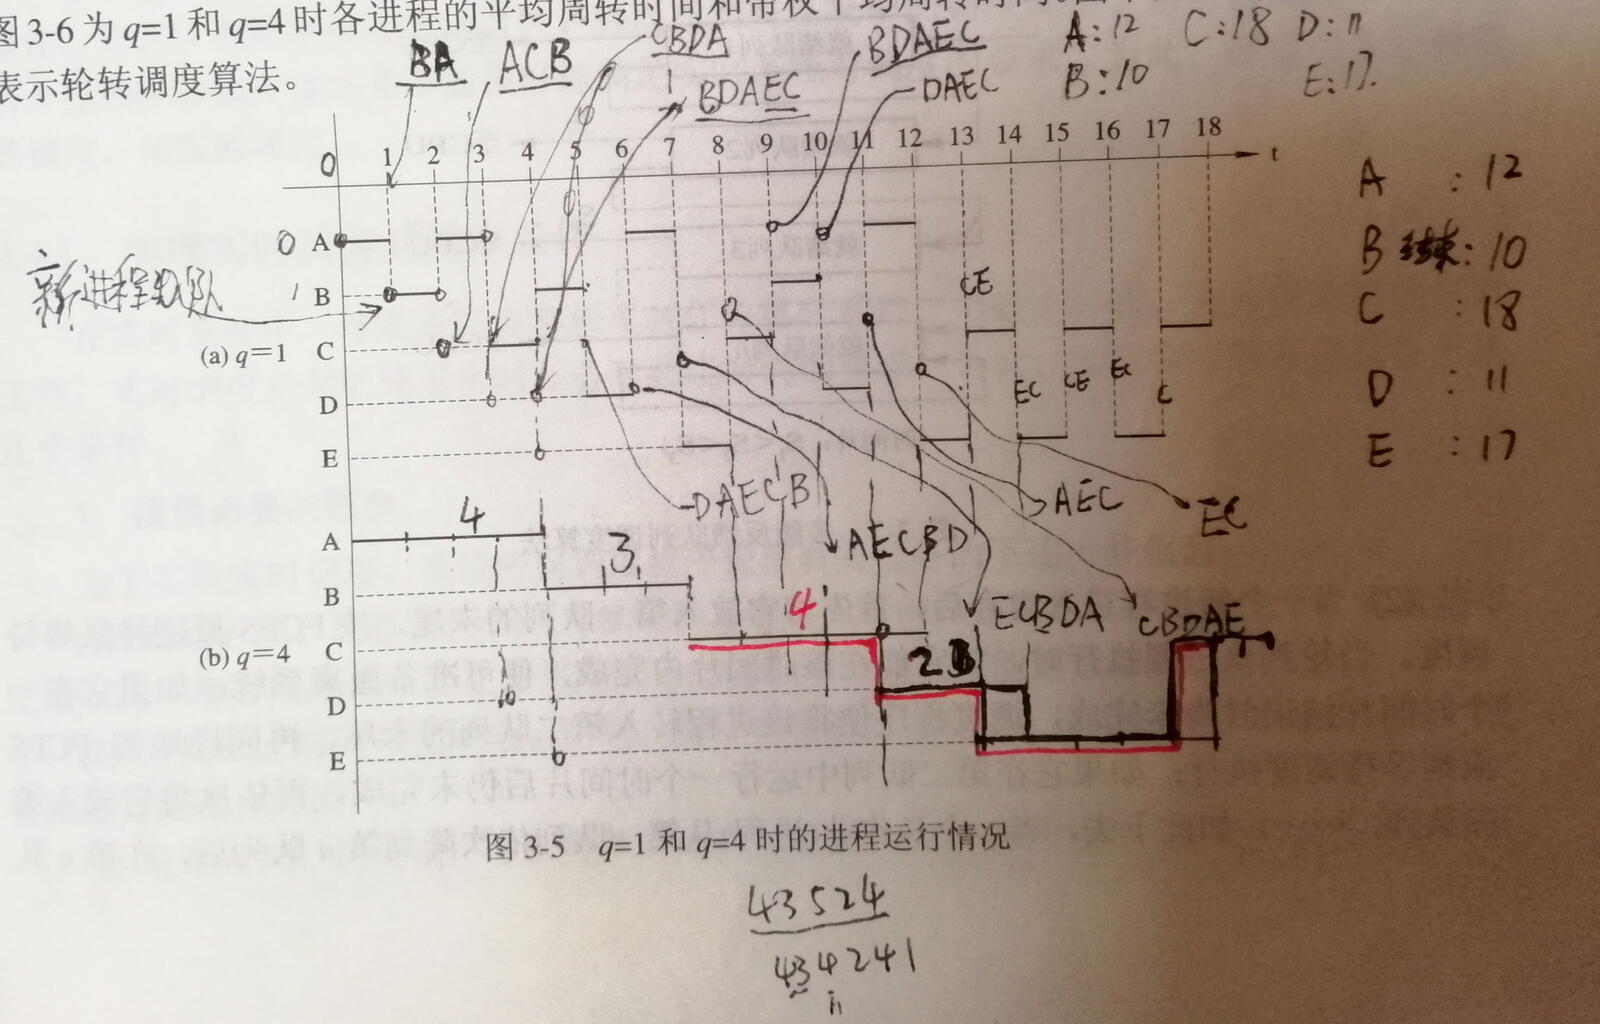 图3-6为q=1和q=4时各进程的平均周转时间和带权平均周转时间。
表示轮转调度算法。
BA
ACB
CBDA
BDAEC
BDAEC
DAEC
A:12 C:18 D:11
B:10 E:17
0 1 2 3 4 5 6 7 8 9 10 11 12 13 14 15 16 17 18 t
0 A
1 B
新进程到队
(a) q=1 C
D
E
CE
EC
CE
EC
C
A : 12
B 结束: 10
C : 18
D : 11
E : 17
DAECB
AECBD
AEC
EC
ECBDA
CBDAE
A 4
B 3
(b) q=4 C 4
D 2
E
图3-5 q=1和q=4时的进程运行情况
43524
434241